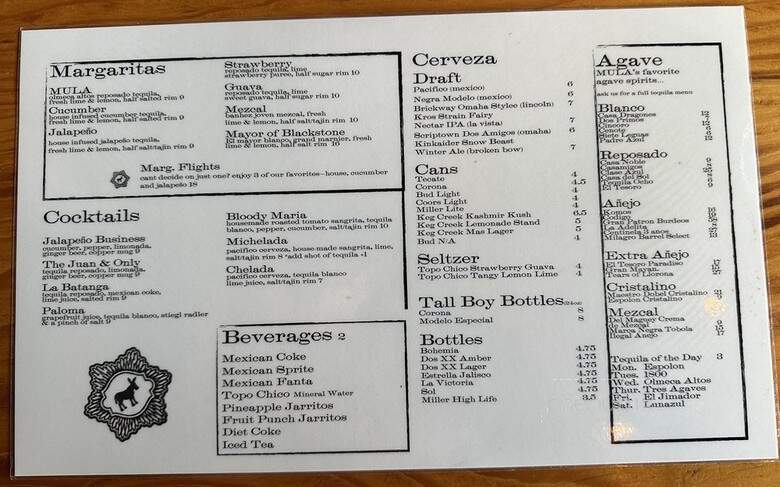 Margaritas
MULA
olmeca altos reposado tequila,
fresh lime & lemon, half salted rim 9
Cucumber
house infused cucumber tequila,
fresh lime & lemon, half salted rim 9
Jalapeño
house infused jalapeño tequila,
fresh lime & lemon, half salt/tajin rim 9
Strawberry
reposado tequila, lime
strawberry puree, half sugar rim 10
Guava
reposado tequila, lime
sweet guava, half sugar rim 10
Mezcal
banhez joven mezcal, fresh
lime & lemon, half salt/tajin rim 10
Mayor of Blackstone
El mayor blanco, grand marnier, fresh
lime & lemon, half salt rim 10
Marg. Flights
cant decide on just one? enjoy 3 of our favorites-house, cucumber
and jalapeño 18
Cocktails
Jalapeño Business
cucumber, pepper, limonada,
ginger beer, copper mug 9
The Juan & Only
tequila reposado, limonada,
ginger beer, copper mug 9
La Batanga
tequila reposado, mexican coke,
lime juice, salted rim 9
Paloma
grapefruit juice, tequila blanco, stiegl radler
& a pinch of salt 9
Bloody Maria
homemade roasted tomato sangrita, tequila
blanco, pepper, cucumber, salt/tajin rim 10
Michelada
pacifico cerveza, house-made sangrita, lime,
salt/tajin rim 8 *add shot of tequila +1
Chelada
pacifico cerveza, tequila blanco
lime juice, salt/tajin rim 7
Beverages 2
Mexican Coke
Mexican Sprite
Mexican Fanta
Topo Chico Mineral Water
Pineapple Jarritos
Fruit Punch Jarritos
Diet Coke
Iced Tea
Cerveza
Draft
Pacifico (mexico) 6
Negra Modelo (mexico) 6
Brickway Omaha Stylee (lincoln) 7
Kros Strain Fairy
Nectar IPA (la vista) 7
Scriptown Dos Amigos (omaha) 6
Kinkaider Snow Beast
Winter Ale (broken bow) 7
Cans
Tecate 4
Corona 4.5
Bud Light 4
Coors Light 4
Miller Lite 4
Keg Creek Kashmir Kush 6.5
Keg Creek Lemonade Stand 5
Keg Creek Mas Lager 5
Bud N/A 4
Seltzer
Topo Chico Strawberry Guava 4
Topo Chico Tangy Lemon Lime 4
Tall Boy Bottles
Corona 8
Modelo Especial 8
Bottles
Bohemia 4.75
Dos XX Amber 4.75
Dos XX Lager 4.75
Estrella Jalisco 4.75
La Victoria 4.75
Sol 4.75
Miller High Life 3.5
Agave
MULA's favorite
agave spirits...
ask us for a full tequila menu
Blanco
Casa Dragones
Dos Primos
Cincoro
Cenote
Siete Leguas
Padre Azul
Reposado
Casa Noble
Casamigos
Clase Azul
Casa del Sol
Tequila Ocho
El Tesoro
Añejo
Komos
Codigo
Gran Patron Burdeos
La Adelita
Centinela 3 anos
Milagro Barrel Select
Extra Añejo
El Tesoro Paradiso
Gran Mayan
Tears of Llorona
Cristalino
Maestro Dobel Cristalino
Espolon Cristalino
Mezcal
Del Maguey Crema
de Mezcal
Marca Negra Tobola
Ilegal Anejo 17
Tequila of the Day 3
Mon. Espolon
Tues. 1800
Wed. Olmeca Altos
Thur. Tres Agaves
Fri. El Jimador
Sat. Lunazul